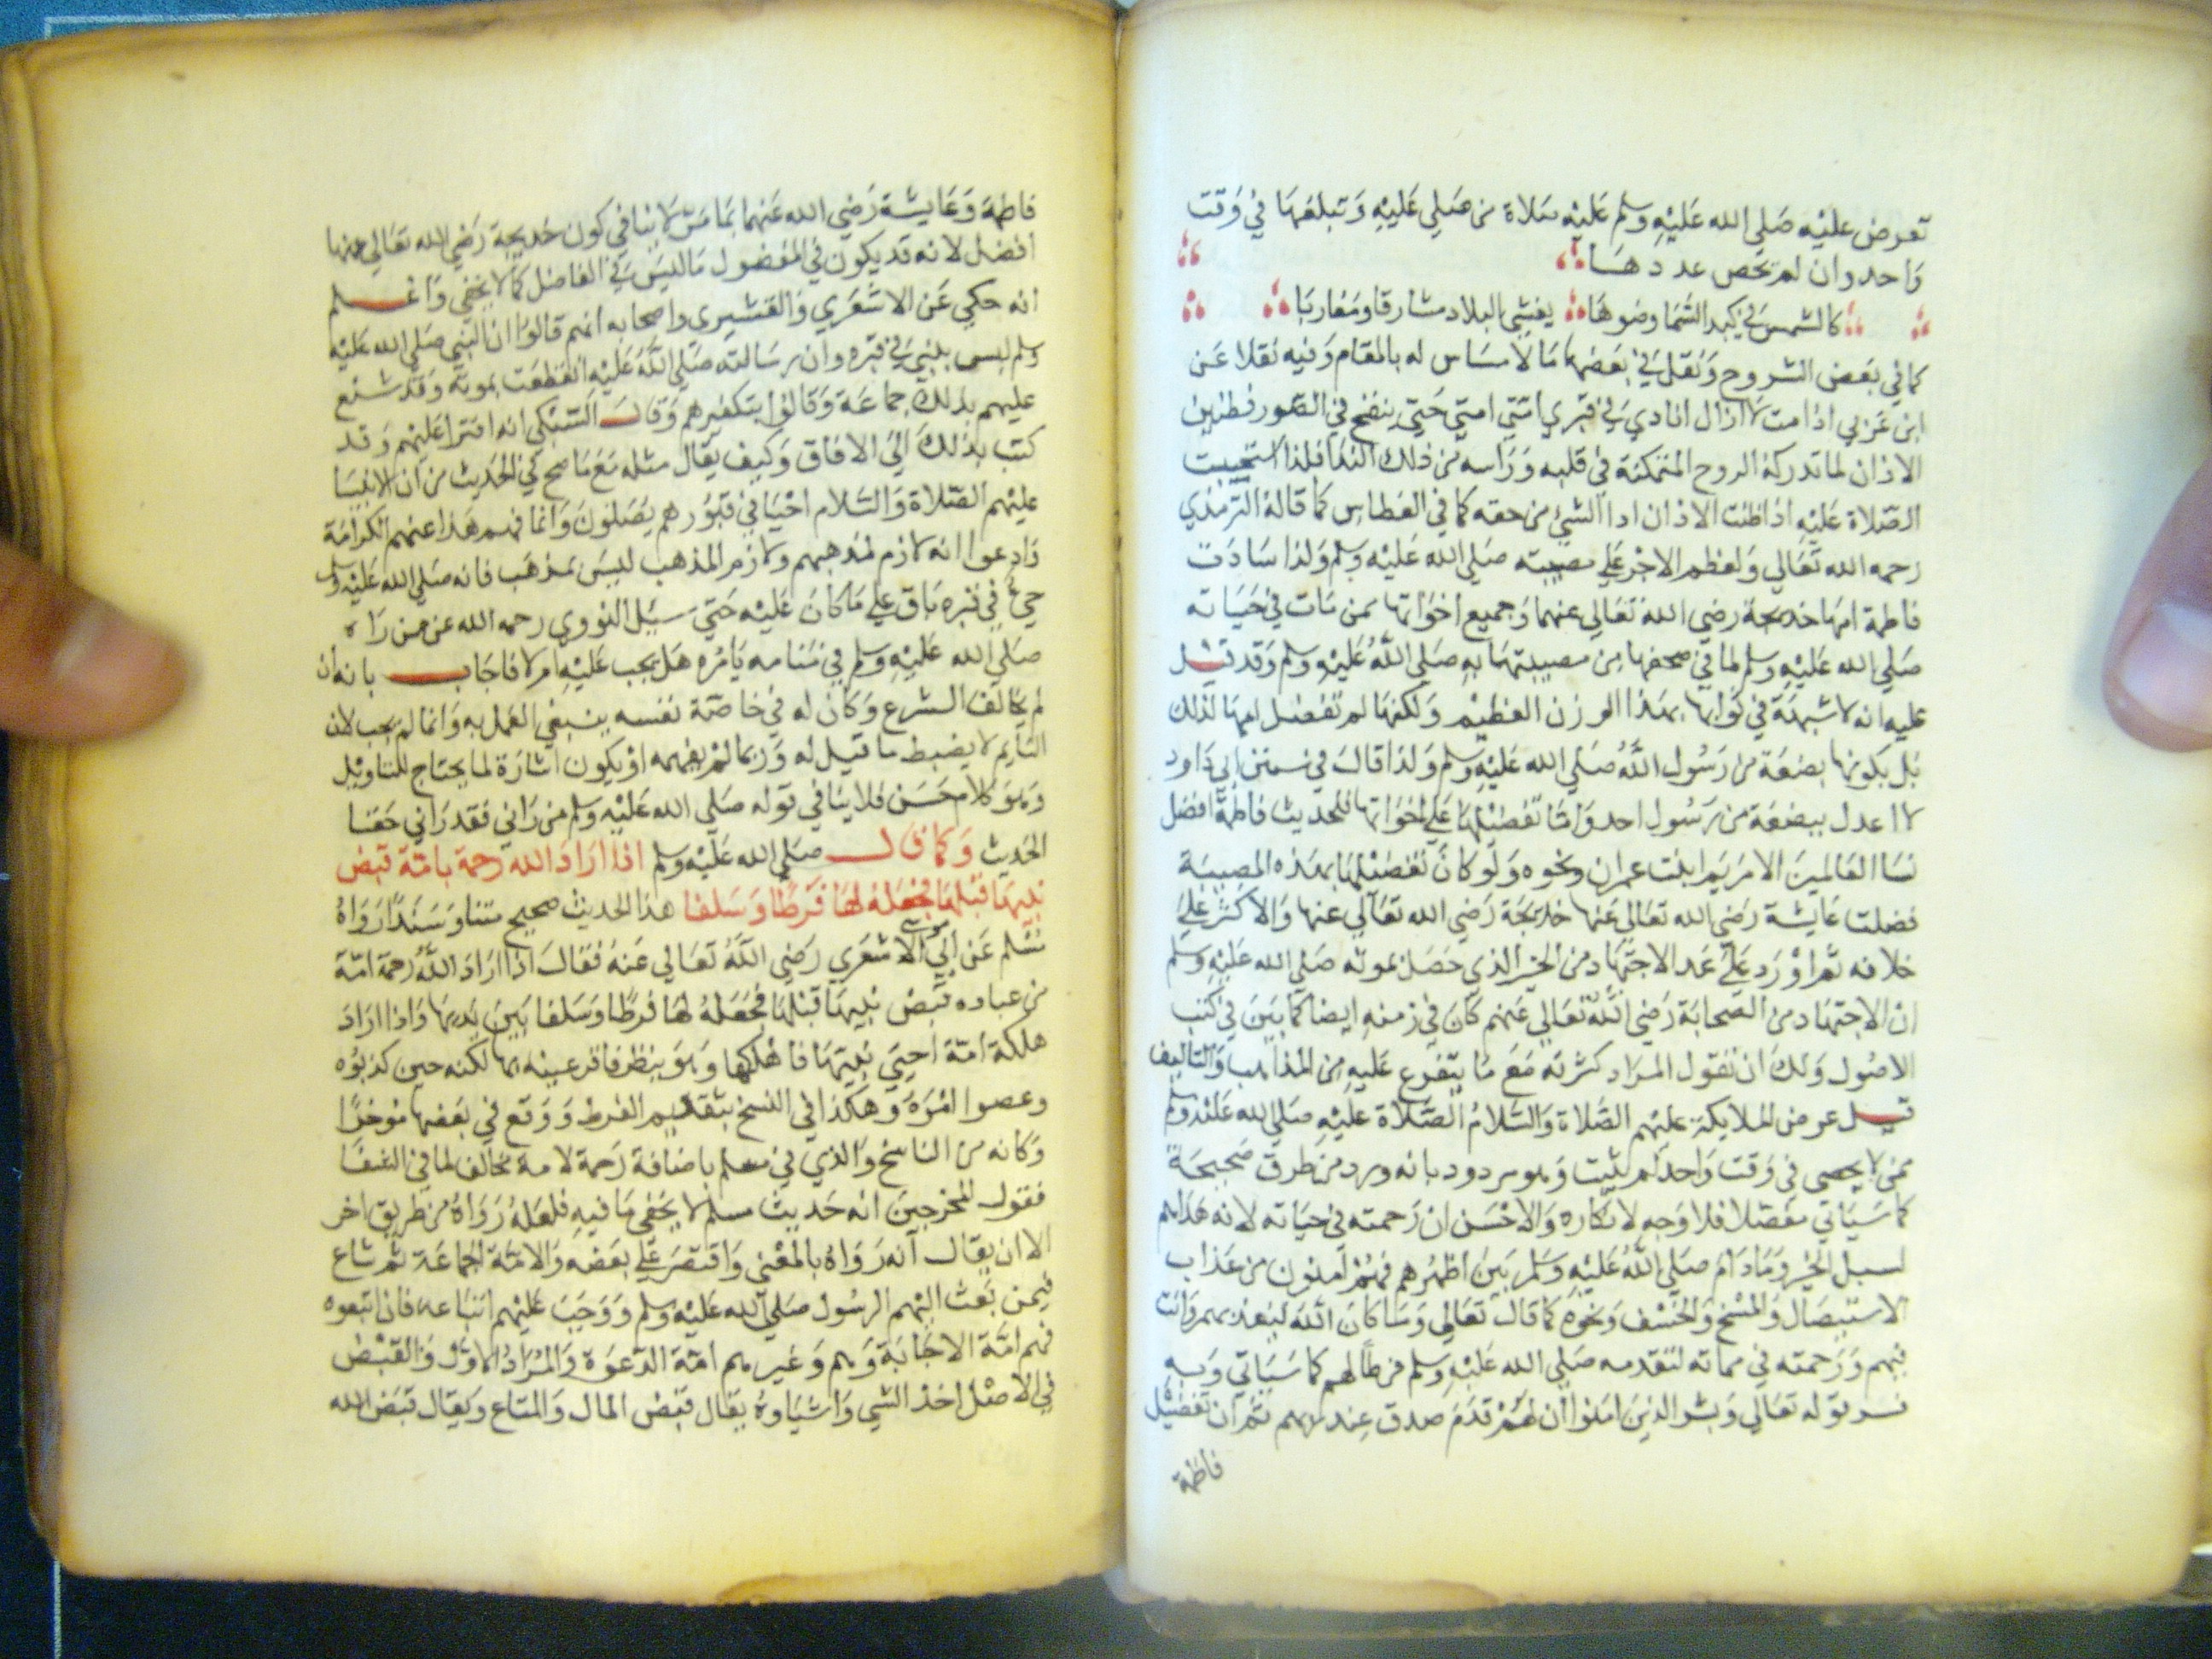 تعرض عليه صلي الله عليه وسلم عليه صلاة من صلي عليه وتبلغها في وقت
واحد وان لم تحص عددها
كالشمس في كبد السما وضوها يغشي البلاد مشارقا ومغاربا
كما في بعض الشروح ونقل في بعضها مالا مساس له بالمقام وفيه نقلا عن
ابن عربي اذا مت لا ازال انادي في قبري امتي امتي حتي ينفخ في الصور فطنين
الاذان لما تدركه الروح المتمكنة في قلبه وراسه من ذلك الندا فلذا استحببت
الصلاة عليه اذا طنت الاذان ادا الشي من حقه كما في العطاس كما قاله الترمذي
رحمه الله تعالي ولعظم الاجر علي مصيبته صلي الله عليه وسلم ولذا سادت
فاطمة امها خديجة رضي الله تعالي عنهما وجميع اخواتها ممن مات في حياته
صلي الله عليه وسلم لما في صحفها من مصيبتها به صلي الله عليه وسلم وقد قيل
عليه انه لا شبهة في ثوابها بهذا الوزن العظيم ولكنها لم تفضل امها لذلك
بل بكونها بضعة من رسول الله صلي الله عليه وسلم ولذا قال في سنن ابي داود
لا اعدل ببضعة من رسول احد واما تفضيلها علي اخواتها فللحديث فاطمة افضل
نسا العالمين الا مريم ابنت عمران ونحوه ولو كان تفضيلها بهذه المصيبة
فضلت عايشة رضي الله تعالي عنها خديجة رضي الله تعالي عنها والاكثر علي
خلافه ثم اورد علي عد الاجتهاد من الخير الذي حصل بموته صلي الله عليه وسلم
ان الاجتهاد من الصحابة رضي الله تعالي عنهم كان في زمنه ايضا كما بين في كتب
الاصول ولك ان تقول المراد كثرته مع ما يتفرع عليه من المذاهب والتاليف
قيل عرض الملايكة عليهم الصلاة والسلام الصلاة عليه صلي الله عليه وسلم
ممن لا يحصي في وقت واحد لم يثبت وهو مردود بانه ورد من طرق صحيحة
كما سياتي مفصلا فلا وجه لانكاره والاحسن ان رحمته في حياته لانه هداهم
لسبل الخير وما دام صلي الله عليه وسلم بين اظهرهم فهم امنون من عذاب
الاستيصال والمسخ والخسف ونحوه كما قال تعالي وما كان الله ليعذبهم وانت
فيهم ورحمته في مماته لتقدمه صلي الله عليه وسلم فرطا لهم كما سياتي وبه
فسر قوله تعالي وبشر الذين امنوا ان لهم قدم صدق عند ربهم ثم ان تفضيل
فاطمة
فاطمة وعايشة رضي الله عنهما بما مر لا ينافي كون خديجة رضي الله تعالي عنها
افضل لانه قد يكون في المفضول ما ليس في الفاضل كما لا يخفي واعلم
انه حكي عن الاشعري والقشيري واصحابه انهم قالوا ان النبي صلي الله عليه
وسلم ليس بنبي في قبره وان رسالته صلي الله عليه انقطعت بموته وقد شنع
عليهم بذلك جماعة وقالوا بتكفيرهم وقال السبكي انه افترا عليهم وقد
كتب بذلك الي الافاق وكيف يقال مثله مع ما صح في الحديث من ان الانبيا
عليهم الصلاة والسلام احيا في قبورهم يصلون وانما فهم هذا عنهم الكرامة
وادعوا انه لازم لمذهبهم ولازم المذهب ليس بمذهب فانه صلي الله عليه وسلم
حي في قبره باق علي ما كان عليه حتي سيل النووي رحمه الله عن من راه
صلي الله عليه وسلم في منامه يامره هل يجب عليه ام لا فاجاب بانه ان
لم يخالف الشرع وكان له في خاصة نفسه ينبغي العمل به وانما لم يجب لان
النايم لا يضبط ما قيل له وربما لم يفهمه او يكون اشارة لما يحتاج للتاويل
وهو كلام حسن فلا ينافي قوله صلي الله عليه وسلم من راني فقد راني حقا
الحديث وكما قال صلي الله عليه وسلم اذا اراد الله رحمة بامة قبض
نبيها قبلها فجعله لها فرطا وسلفا هذا الحديث صحيح متنا وسندا رواه
مسلم عن ابي موسي الاشعري رضي الله تعالي عنه فقال اذا اراد الله رحمة امة
من عباده قبض نبيها قبلها فجعله لها فرطا وسلفا بين يديها واذا اراد
هلكة امة احيي نبيها فاهلكها وهو ينظر فاقر عينه بها لكنه حين كذبوه
وعصوا امره وهكذا في النسخ بتقديم الفرط ووقع في بعضها موخرا
وكانه من الناسخ والذي في مسلم باضافة رحمة لامة مخالف لما في الشفا
فقول المخرجين انه حديث مسلم لا يخفي ما فيه فلعله رواه من طريق اخر
الا ان يقال انه رواه بالمعني واقتصر علي بعضه والامة الجماعة ثم شاع
فيمن بعث اليهم الرسول صلي الله عليه وسلم ووجب عليهم اتباعه فان اتبعوه
فهم امة الاجابة وهم وغيرهم امة الدعوة والمراد الاول والقبض
في الاصل اخذ الشي واستيفاوه يقال قبض المال والمتاع ويقال قبض الله